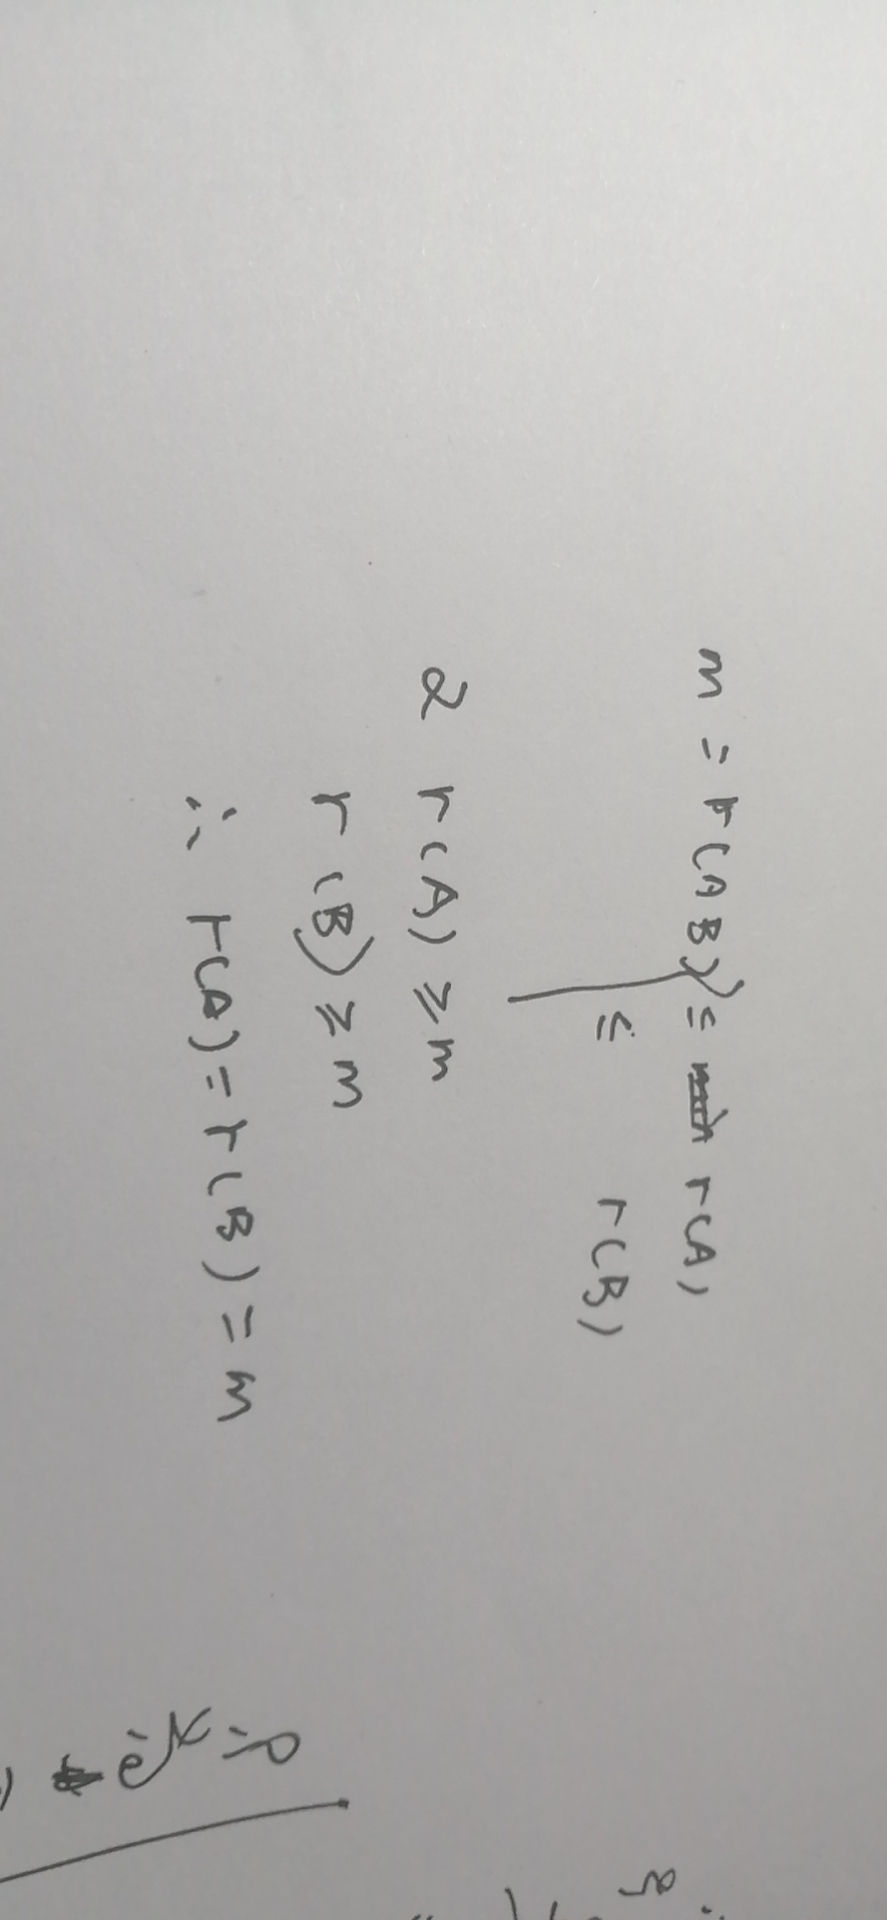 m = r(AB) ≤ r(A)
≤ r(B)
2 r(A) ≥ m
r(B) ≥ m
∴ r(A) = r(B) = m